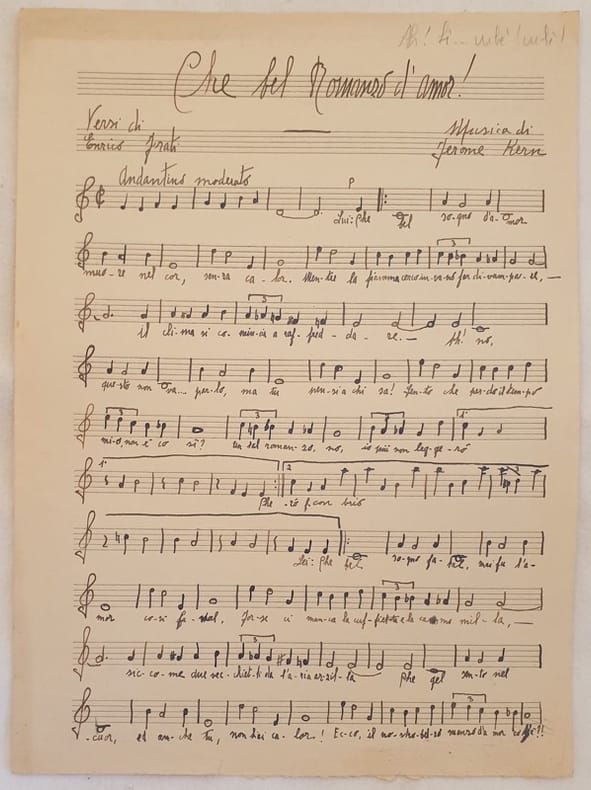 Che bel Romanzo d'amor!
Versi di
Enrico Frati
Musica di
Jerome Kern
Andantino moderato
P
Lui: Che bel so-gno d'a-mor
muo-re nel cor, sen-za ca-lor. Men-tre la fiamma cerco in-va-no far di-vam-pa-re,
il cli-ma si co-min-cia a raf-fred-da-re. Ah! no,
que-sto non va... per-do, ma tu pen-si a chi sa! Sen-to che per-do il tempo
mio, non è co-sì? un bel roman-zo, no, io mai non leg-ge-rò
3
1ª
1ª
2
Che rò f. con brio
Lei: Che bel so-gno fa-tal, mai fu l'a-
mor co-sì fa-tal, For-se ci man-ca la mil-la,
sic-co-me due vec-chiet-ti da l'a-ria ar-zil-la Che gel sen-to nel
cuor, ed an-che tu, non hai ca-lor.! Ec-co, il no-stro bel ro-manzo d'a-mor